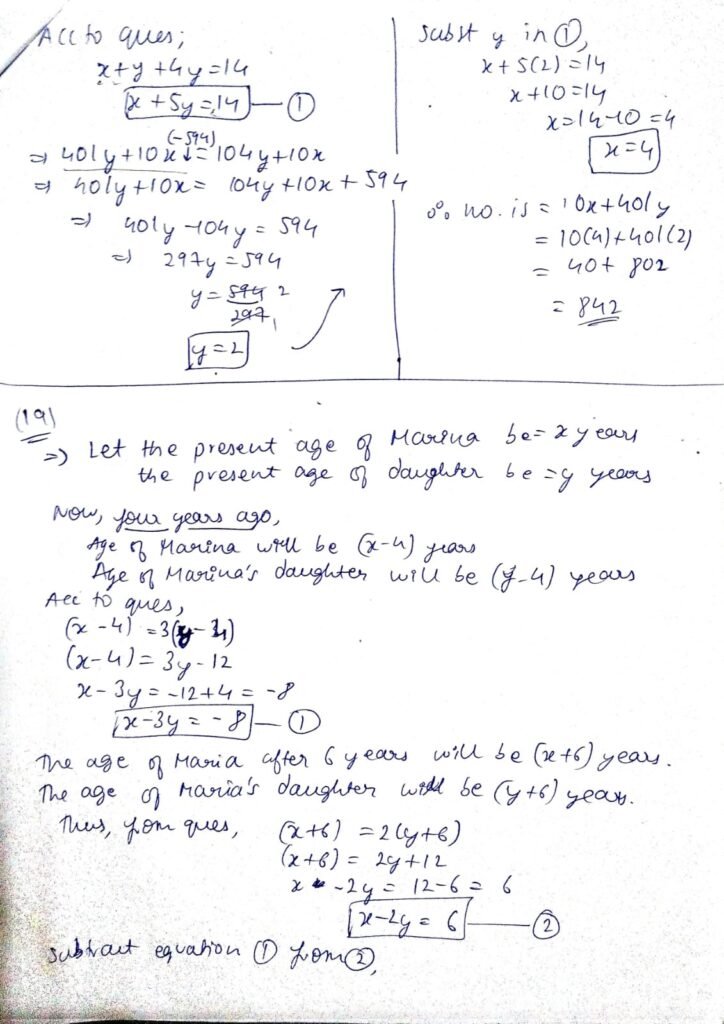 Acc to ques;
x+y+4y=14
x+5y=14 — ①
(-594)
⇒ 401y+10x ↓= 104y+10x
⇒ 401y+10x = 104y+10x+594
⇒ 401y-104y = 594
⇒ 297y = 594
y = 594 2
297 1
y=2
Subst y in ①,
x+5(2)=14
x+10=14
x=14-10=4
x=4
∴ no. is = 10x+401y
= 10(4)+401(2)
= 40+ 802
= 842
(19)
⇒ Let the present age of Marina be= x years
the present age of daughter be =y years
Now, four years ago,
Age of Marina will be (x-4) years
Age of Marina's daughter will be (y-4) years
Acc to ques,
(x-4) =3(y-4)
(x-4)= 3y-12
x-3y=-12+4 = -8
x-3y = -8 — ①
The age of Maria after 6 years will be (x+6) years.
The age of Maria's daughter will be (y+6) years.
Thus, from ques, (x+6) =2(y+6)
(x+6) = 2y+12
x -2y = 12-6 = 6
x-2y = 6 — ②
Subtract equation ① from ②,